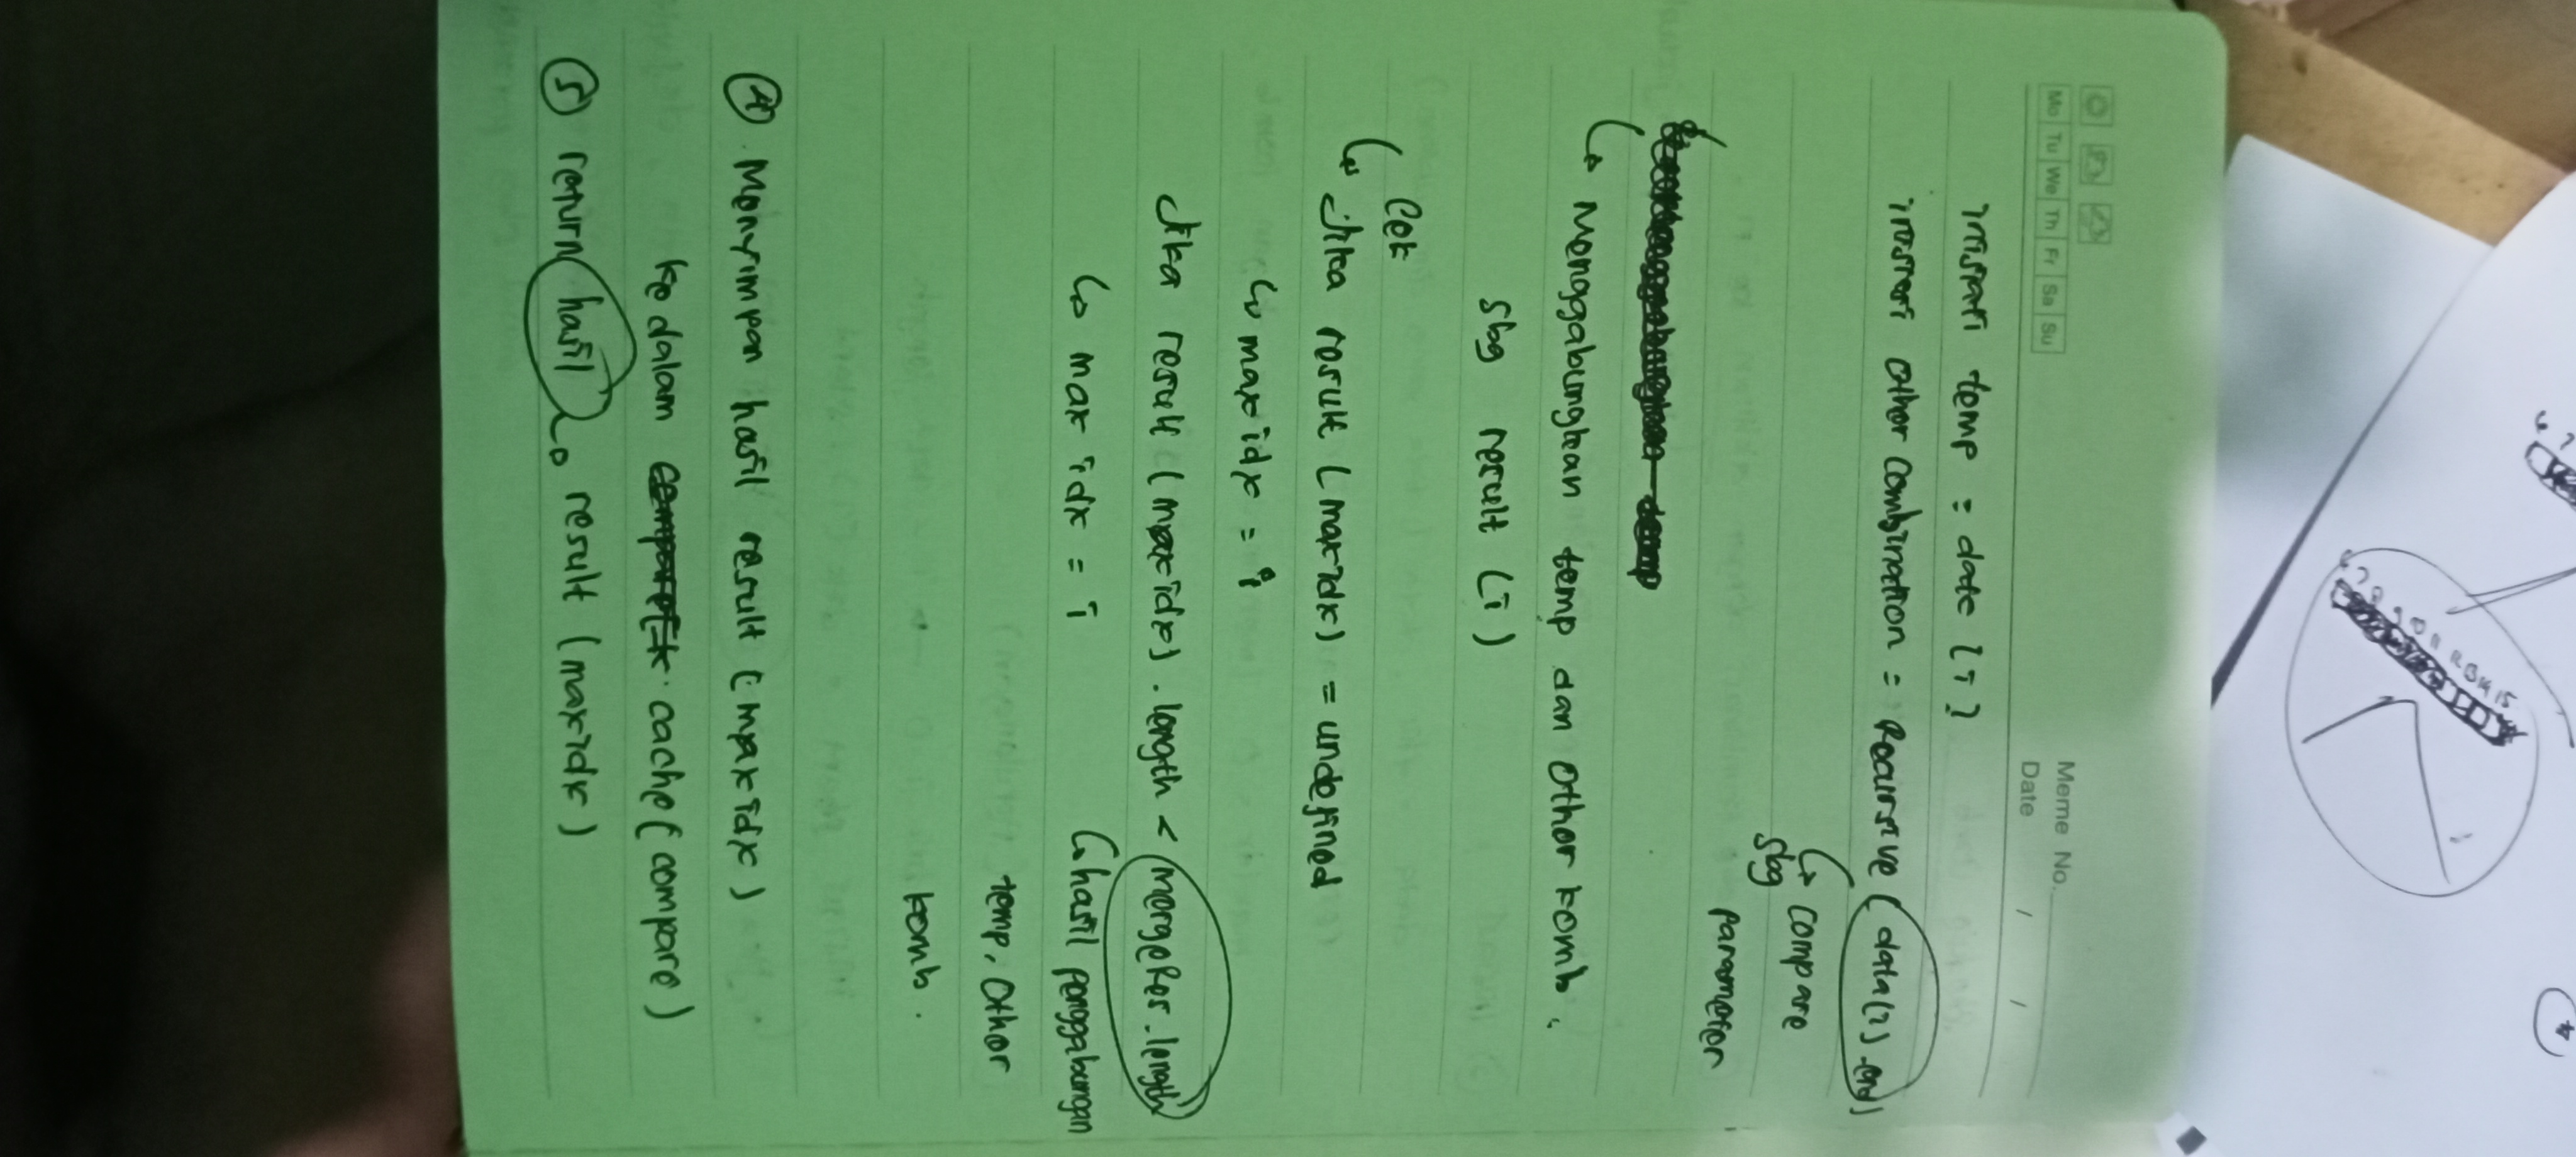 Memo No.
Mo Tu We Th Fr Sa Su
Date / /
inisiasi temp = data [i]
inisiasi other combination = Recursive ( data(i).end)
↳ compare
sbg parameter
↳ Menggabungkan temp dan other komb.
sbg result (i)
Cek
↳ Jika result (maxidx) = undefined
↳ maxidx = i
Jika result (maxidx).length < mergeRes.length
↳ maxidx = i ↳ hasil penggabungan
temp, other
komb.
④. Menyimpan hasil result (maxidx)
ke dalam cache (compare)
⑤ return hasil → result (maxidx)